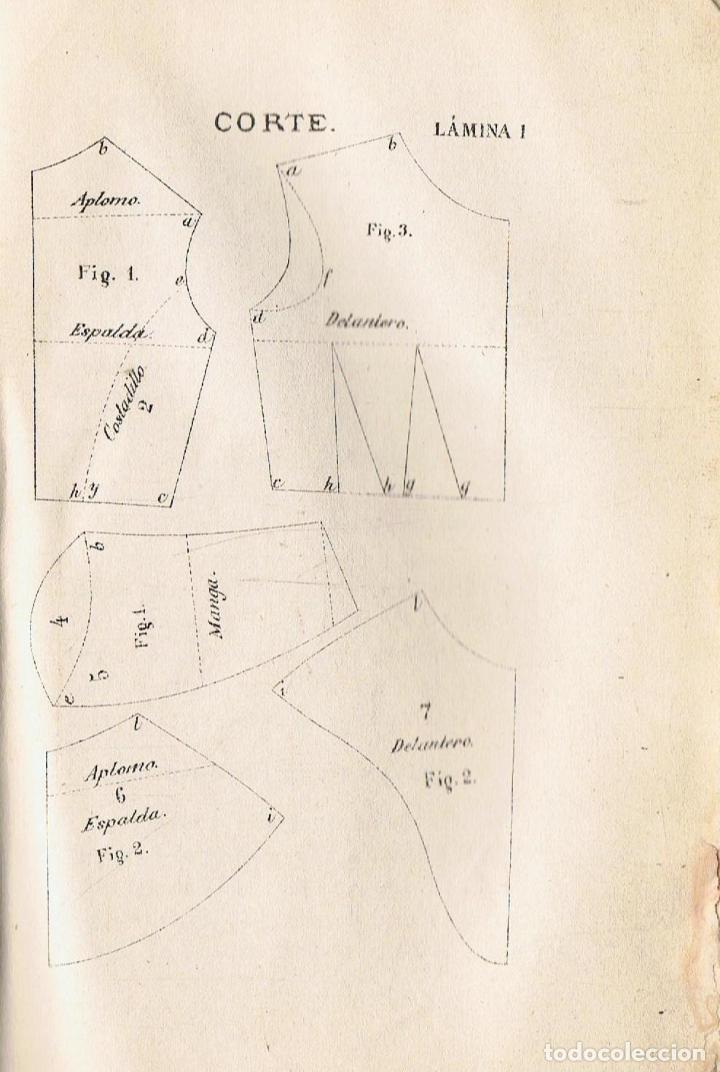 CORTE.
LÁMINA I
b
Aplomo.
a
Fig. 1.
e
Espalda.
d
Costadillo
2
h y
c
b
a
Fig. 3.
f
d
Delantero.
c
h
h
g
g
b
4
Fig. 1.
Manga.
5
e
l
i
7
Delantero.
Fig. 2.
l
Aplomo.
6
Espalda.
i
Fig. 2.
todocoleccion